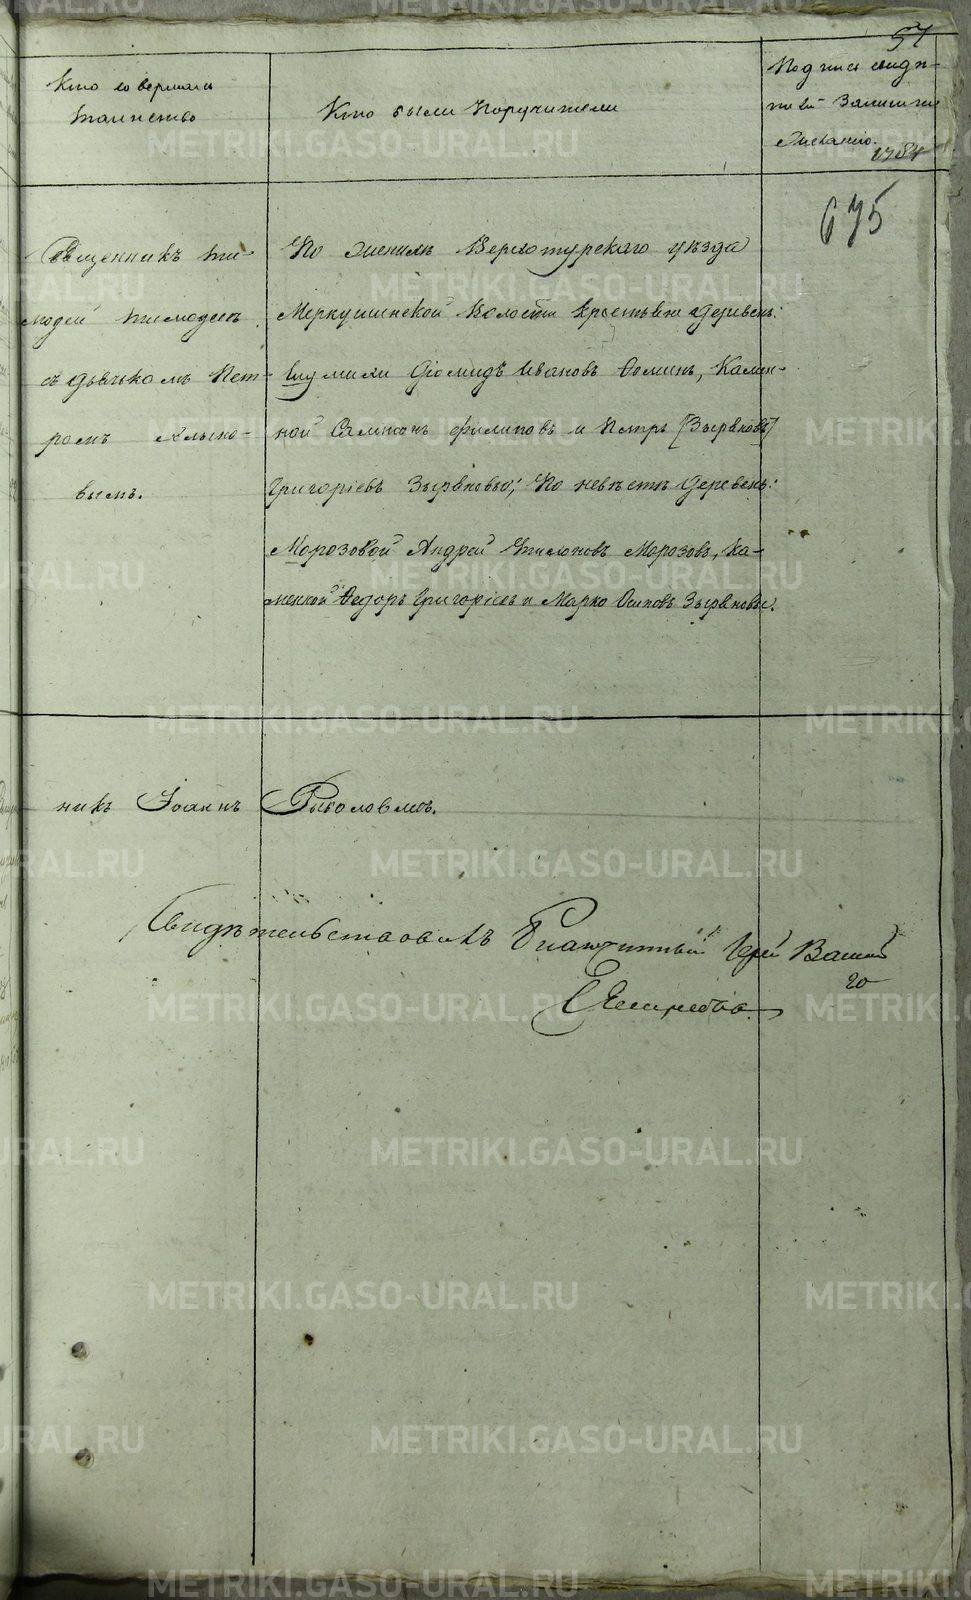 57
Кто совершалъ
таинство
Кто были поручители
Подпись свидѣ-
телей записи по
желанію.
675
Священникъ Ти-
мофей Тимофеевъ
съ дьячкомъ Пет-
ромъ
вымъ.
По женихѣ Верхотурскаго уѣзда
Меркушинской Волости крестьяне деревень:
Шумихи Діомидъ Ивановъ Ѳоминъ, Калин-
ной Самсонъ Филиповъ и Петръ [Зыряновъ]
Григорьевъ Зыряновы; По невѣстѣ деревень:
Морозовой Андрей Морозовъ, Ка-
менной Ѳедоръ Григорьевъ и Марко Осиповъ Зыряновы.
никъ Іоаннъ
Свидѣтельствовалъ Благочинный Іерей
METRIKI.GASO-URAL.RU